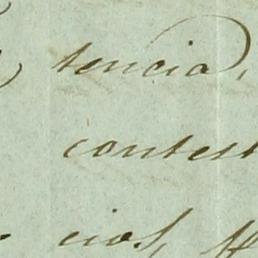 tencia,
contest
cios,